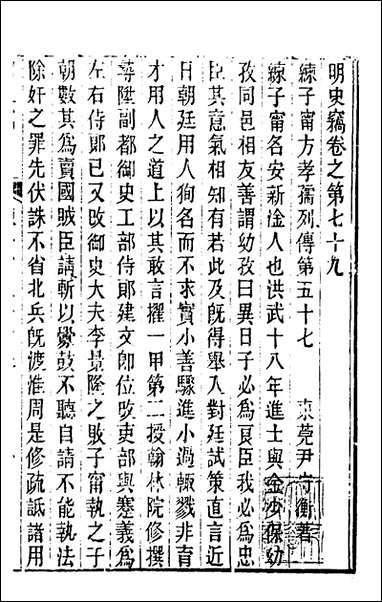 明史竊卷之第七十九
練子甯方孝孺列傳第五十七 東莞尹守衡著
練子甯名安新淦人也洪武十八年進士與金幼
孜同邑相友善謂幼孜曰異日子必為良臣我必為忠
臣其意氣相知有若此及旣得舉入對廷試策直言近
日朝廷用人狥名而不求實小善驟進小過輙戮非育
才用人之道上以其敢言擢一甲第二授翰林院修撰
尋陞副都御史工部侍郞建文卽位改吏部與蹇義為
左右侍郞已又改御史大夫李景隆之敗子甯執之子
朝數其為賣國賊臣請斬以釁鼓不聽自請不能執法
除奸之罪先伏誅不省北兵旣渡淮周是修疏詆諸用